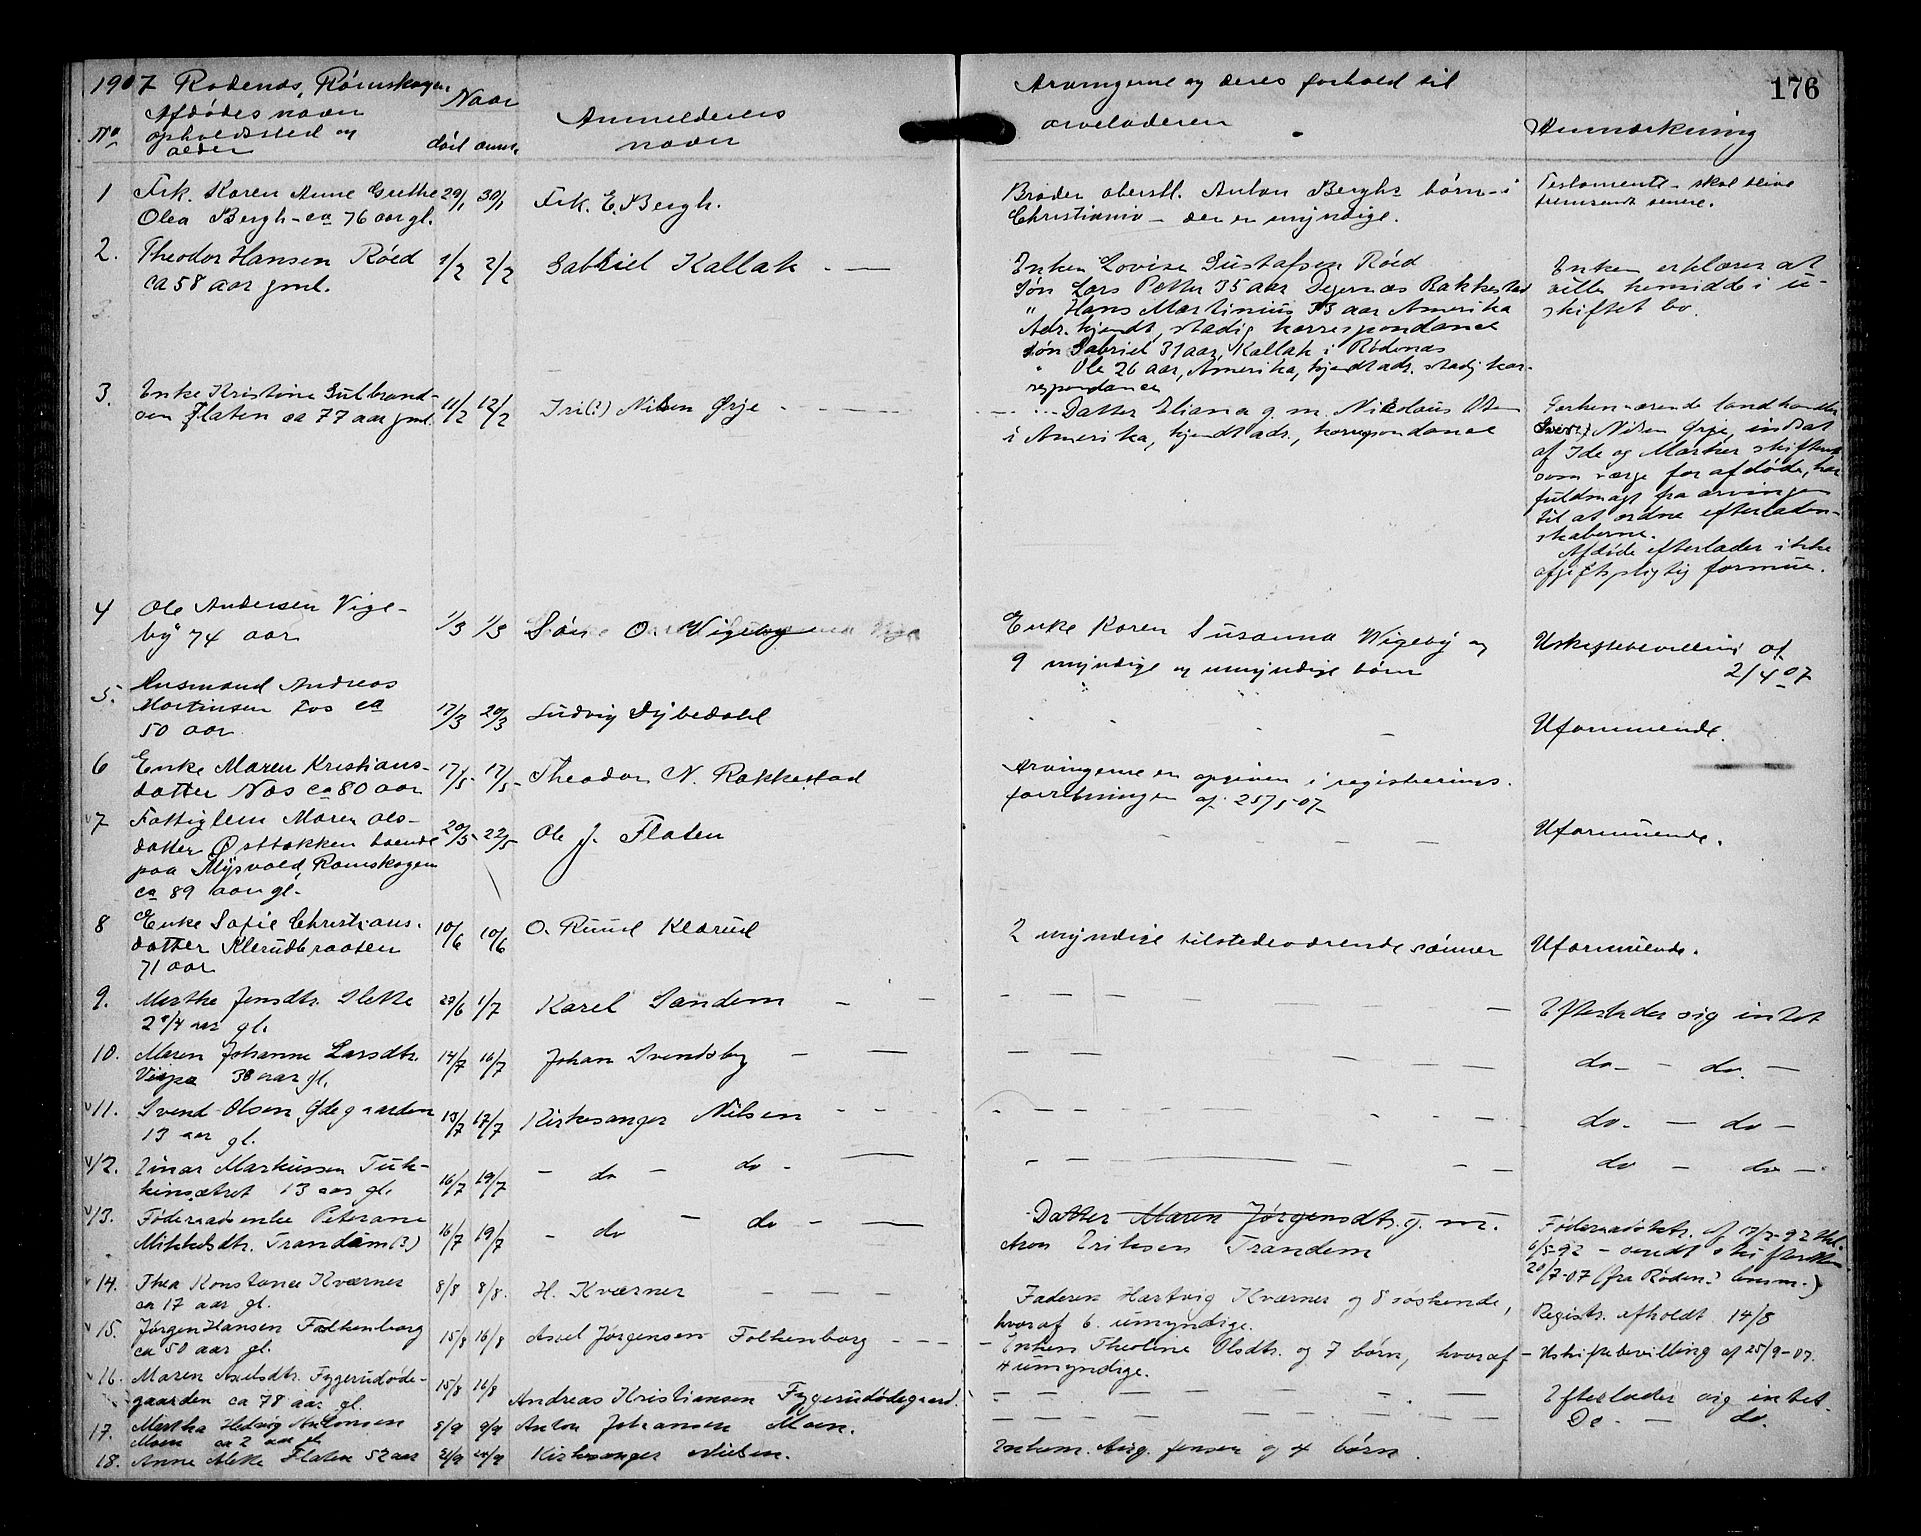 1907 Rødenes, Rømskogen
Arvingerne og deres forhold til
176
No
Afdødes navn
opholdssted og
alder
Naar
død anm.
Anmelderens
navn
arveladeren
Anmærkning
1 Frk. Karen Anne Grethe 29/1 30/1 Frk. E. Bergh. Broder oberstl. Anton Berghs børn i Testamente - skal blive
Olea Bergh - ca 76 aar gl. Christiania - der er myndige. fremsendt senere.
2. Theodor Hansen Røed 1/2 2/2 Gabriel Kallak - — Enken Lovise Gustafsen Røed Enken erklærer at
ca 58 aar gml. Søn Lars Petter 35 aar Degernæs Rakkestad ville hensidde i u-
" Hans Martinius 33 aar Amerika skiftet bo.
Adr. kjendt, stadig korrespondance
Søn Gabriel 31 aar, Kallak i Rødenæs
" Ole 26 aar, Amerika, kjendt adr. stadig kor-
respondance
3. Enke Kristine Gulbrand- 11/2 12/2 Iri(?) Nilsen Ørje - - - Datter Eliana g. m. Nikolaus Olsen Forhenværende landhandler
sen Flaten ca 77 aar gml. i Amerika, kjendt adr., korrespondance Nilsen Ørje, indsat
af Ide og Marker skifteret
som værge for afdøde, har
fuldmagt fra arvingen
til at ordne efterladen-
skaberne.
Afdøde efterlader ikke
afgiftspligtig formue.
4 Ole Andersen Vige- 1/3 1/3 Søn O. Wigeby Enke Karen Susanna Wigeby og Uskiftebevilling af
by 74 aar 9 myndige og umyndige børn 2/4 07
5. Husmand Andreas
Martinsen Fos ca 17/3 20/3 Ludvig Dybedahl Uformuende.
50 aar
6 Enke Maren Kristians- 17/5 17/5 Theodor N. Rakkestad Arvingerne er opgiven i registrerings-
datter Næs ca 80 aar forretningen af 25/5-07
7 Fattiglem Maren Ols- 20/5 22/5 Ole J. Flaten - - - Uformuende.
datter Østbakken boende
paa Mysvold, Rømskogen
ca 89 aar gl.
8 Enke Sofie Christians- 10/6 10/6 O. Ruud Klerud 2 myndige tilstedeværende sønner Uformuende.
datter Klerudbraaten
71 aar
9. Marthe Jensdtr. Slette 29/6 1/7 Karel Sandem - - - Efterlader sig intet
2 3/4 aar gl.
10. Maren Johanne Larsdtr. 14/7 16/7 Johan Svendsby - — do - do. -
38 aar gl.
11. Svend Olsen Ødegaarden 13/7 17/7 Kirkesanger Nilsen - - - do. - do -
13 aar gl.
12. Einar Markussen Tuk- 16/7 19/7 - do - do - — do - do -
kinsætret 13 aar gl.
13. Føderaadsenke Peterane 16/7 19/7 - do - do - — Datter Maren Jørgensdtr. g. m. Føderaadskntr. af 17/2-92 thl.
Mikkelsdtr. Trandem(?) Aron Eriksen Trandem 6/5-92 - sendt skifteretten
20/7-07 (fra Røden. lensm.)
14. Thea Konstance Kværner 8/8 8/8. H. Kværner - - - Faderen Hartvig Kværner og 8 søskende, Registr. afholdt 14/8
ca 17 aar gl. hvoraf 6 umyndige.
15. Jørgen Hansen Falkenborg 15/8 16/8 Axel Jørgensen Falkenborg - - - Enken Theoline Olsdtr. og 7 børn, hvoraf - Uskiftebevilling af 25/9-07.
ca 50 aar gl. 4 umyndige.
16. Maren Axelsdtr. Fygerudøde- 15/8 16/8 Andreas Kristiansen Fygerudødegaard. - - - Efterlader sig intet.
gaarden ca 78 aar gl.
17. Martha Hedvig Antonsen 8/9 9/9 Anton Johansen Moen. - - - Do. - do.
Moen ca 2 aar gl.
18. Anne Flaten 52 aar Kirkesanger Nielsen. Enkem. Aug. Jensen og 4 børn.